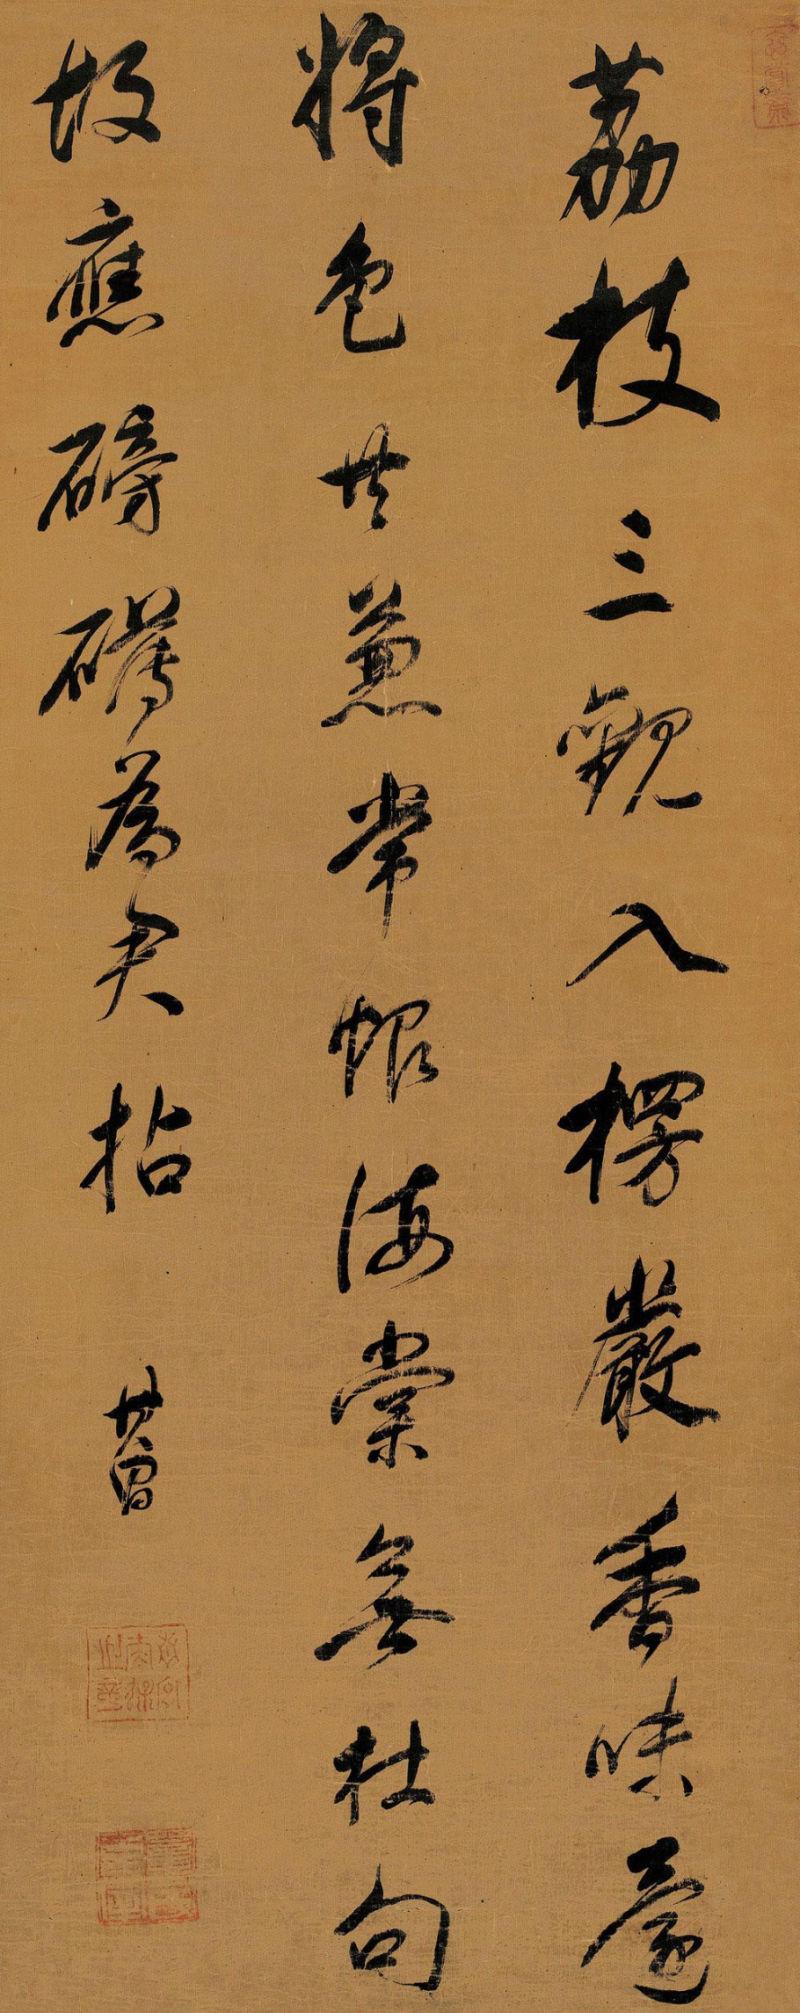 荔枝三觀入楞嚴香味還
將色共兼常恨海棠無杜句
故應磅礴為君拈
其昌